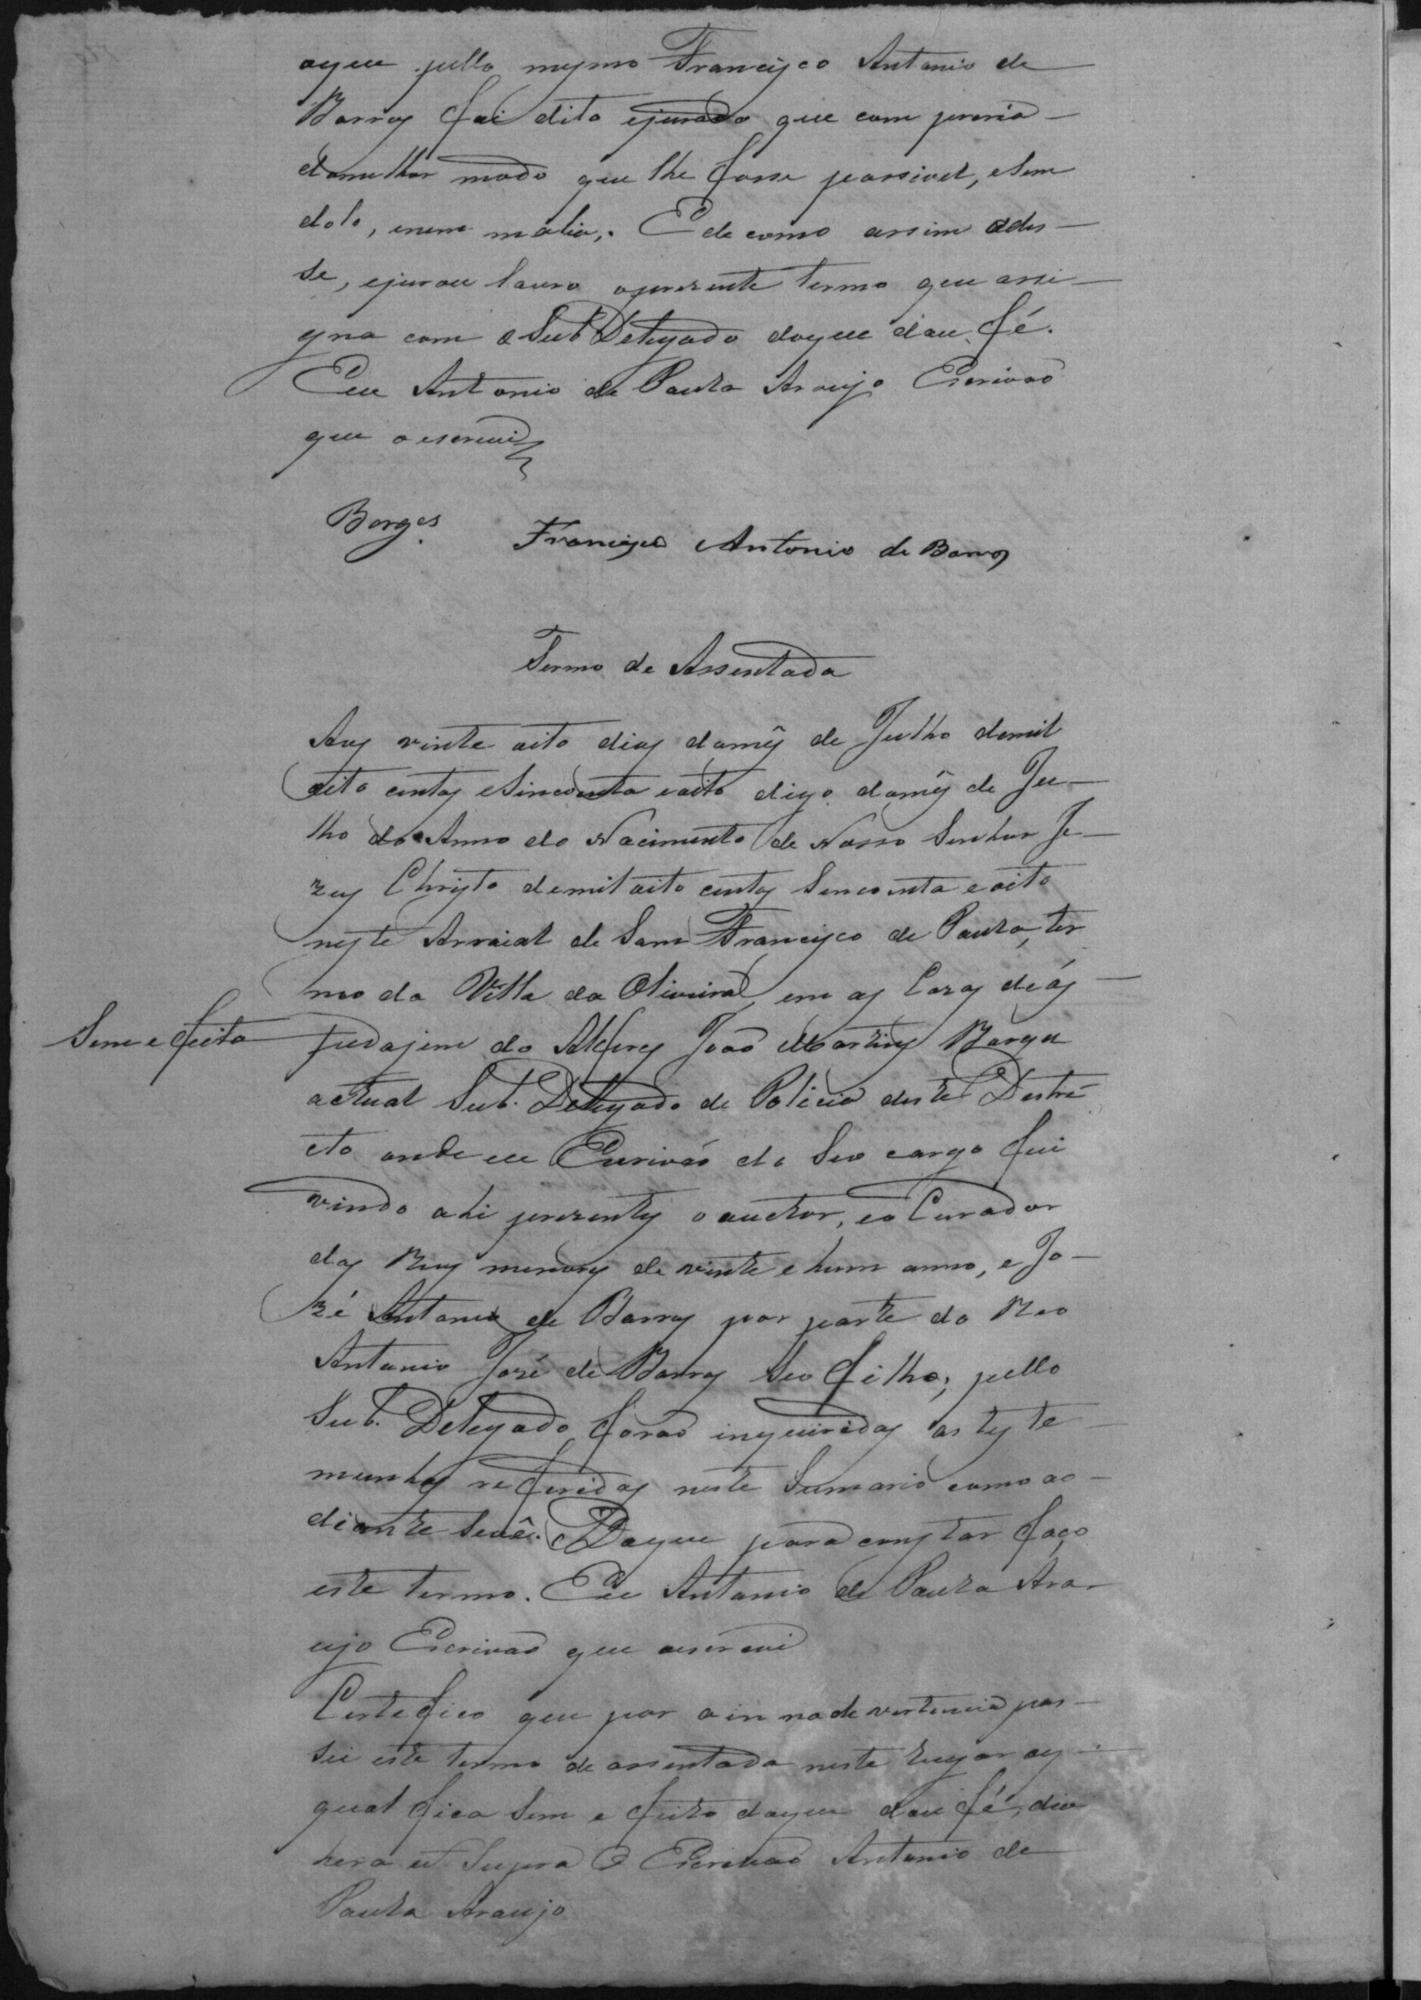 oque pello mesmo Francisco Antonio de
Barros foi dito ejurado que com preria
domelhor modo que lhe fosse possivel, esem
dolo, enem malia,. Edecomo assim odis
se, ejurou lavro opresente termo que assi
gna com o Sub Delegado doque dou fé.
Eu Antonio de Paula Araujo Escrivaõ
que o escrevi
Borges. Francisco Antonio de Barros
Termo de Assentada
Aos vinte oito dias domês de Julho demil
oito centos eSincoenta eoito digo domês de Ju
lho do Anno do Nacimento de Nosso Senhor Je
zus Christo demil oito centos Sincoenta e oito
neste Arraial de Sam Francisco de Paula, ter
mo da Villa da Oliveira, em as Cazas de
Sem e feito
pedajem do Alferes Joaõ Martins Borges
actual Sub. Delegado de Policia deste Destri
cto onde eu Escrivaõ do Seo cargo fui
vindo ahi prezentes o auctor, eo Curador
dos Reos menores de vinte e hum anno, e Jo
zé Antonio de Barros por parte do Reo
Antonio José de Barros Seo filho, pello
Sub. Delegado foraõ inqueridas as teste
munhas referidas neste Sumario como ao
diante Sevê. Doque para constar faço
este termo. Eu Antonio de Paula Ara
ujo Escrivaõ que oescrevi
Certefico que por a in nadevertencia pas
sei este termo de assentada neste lugar oy
qual fica Sem e feito doque dou fé, dia
hera ut Supra O Escrivaõ Antonio de
Paula Araujo